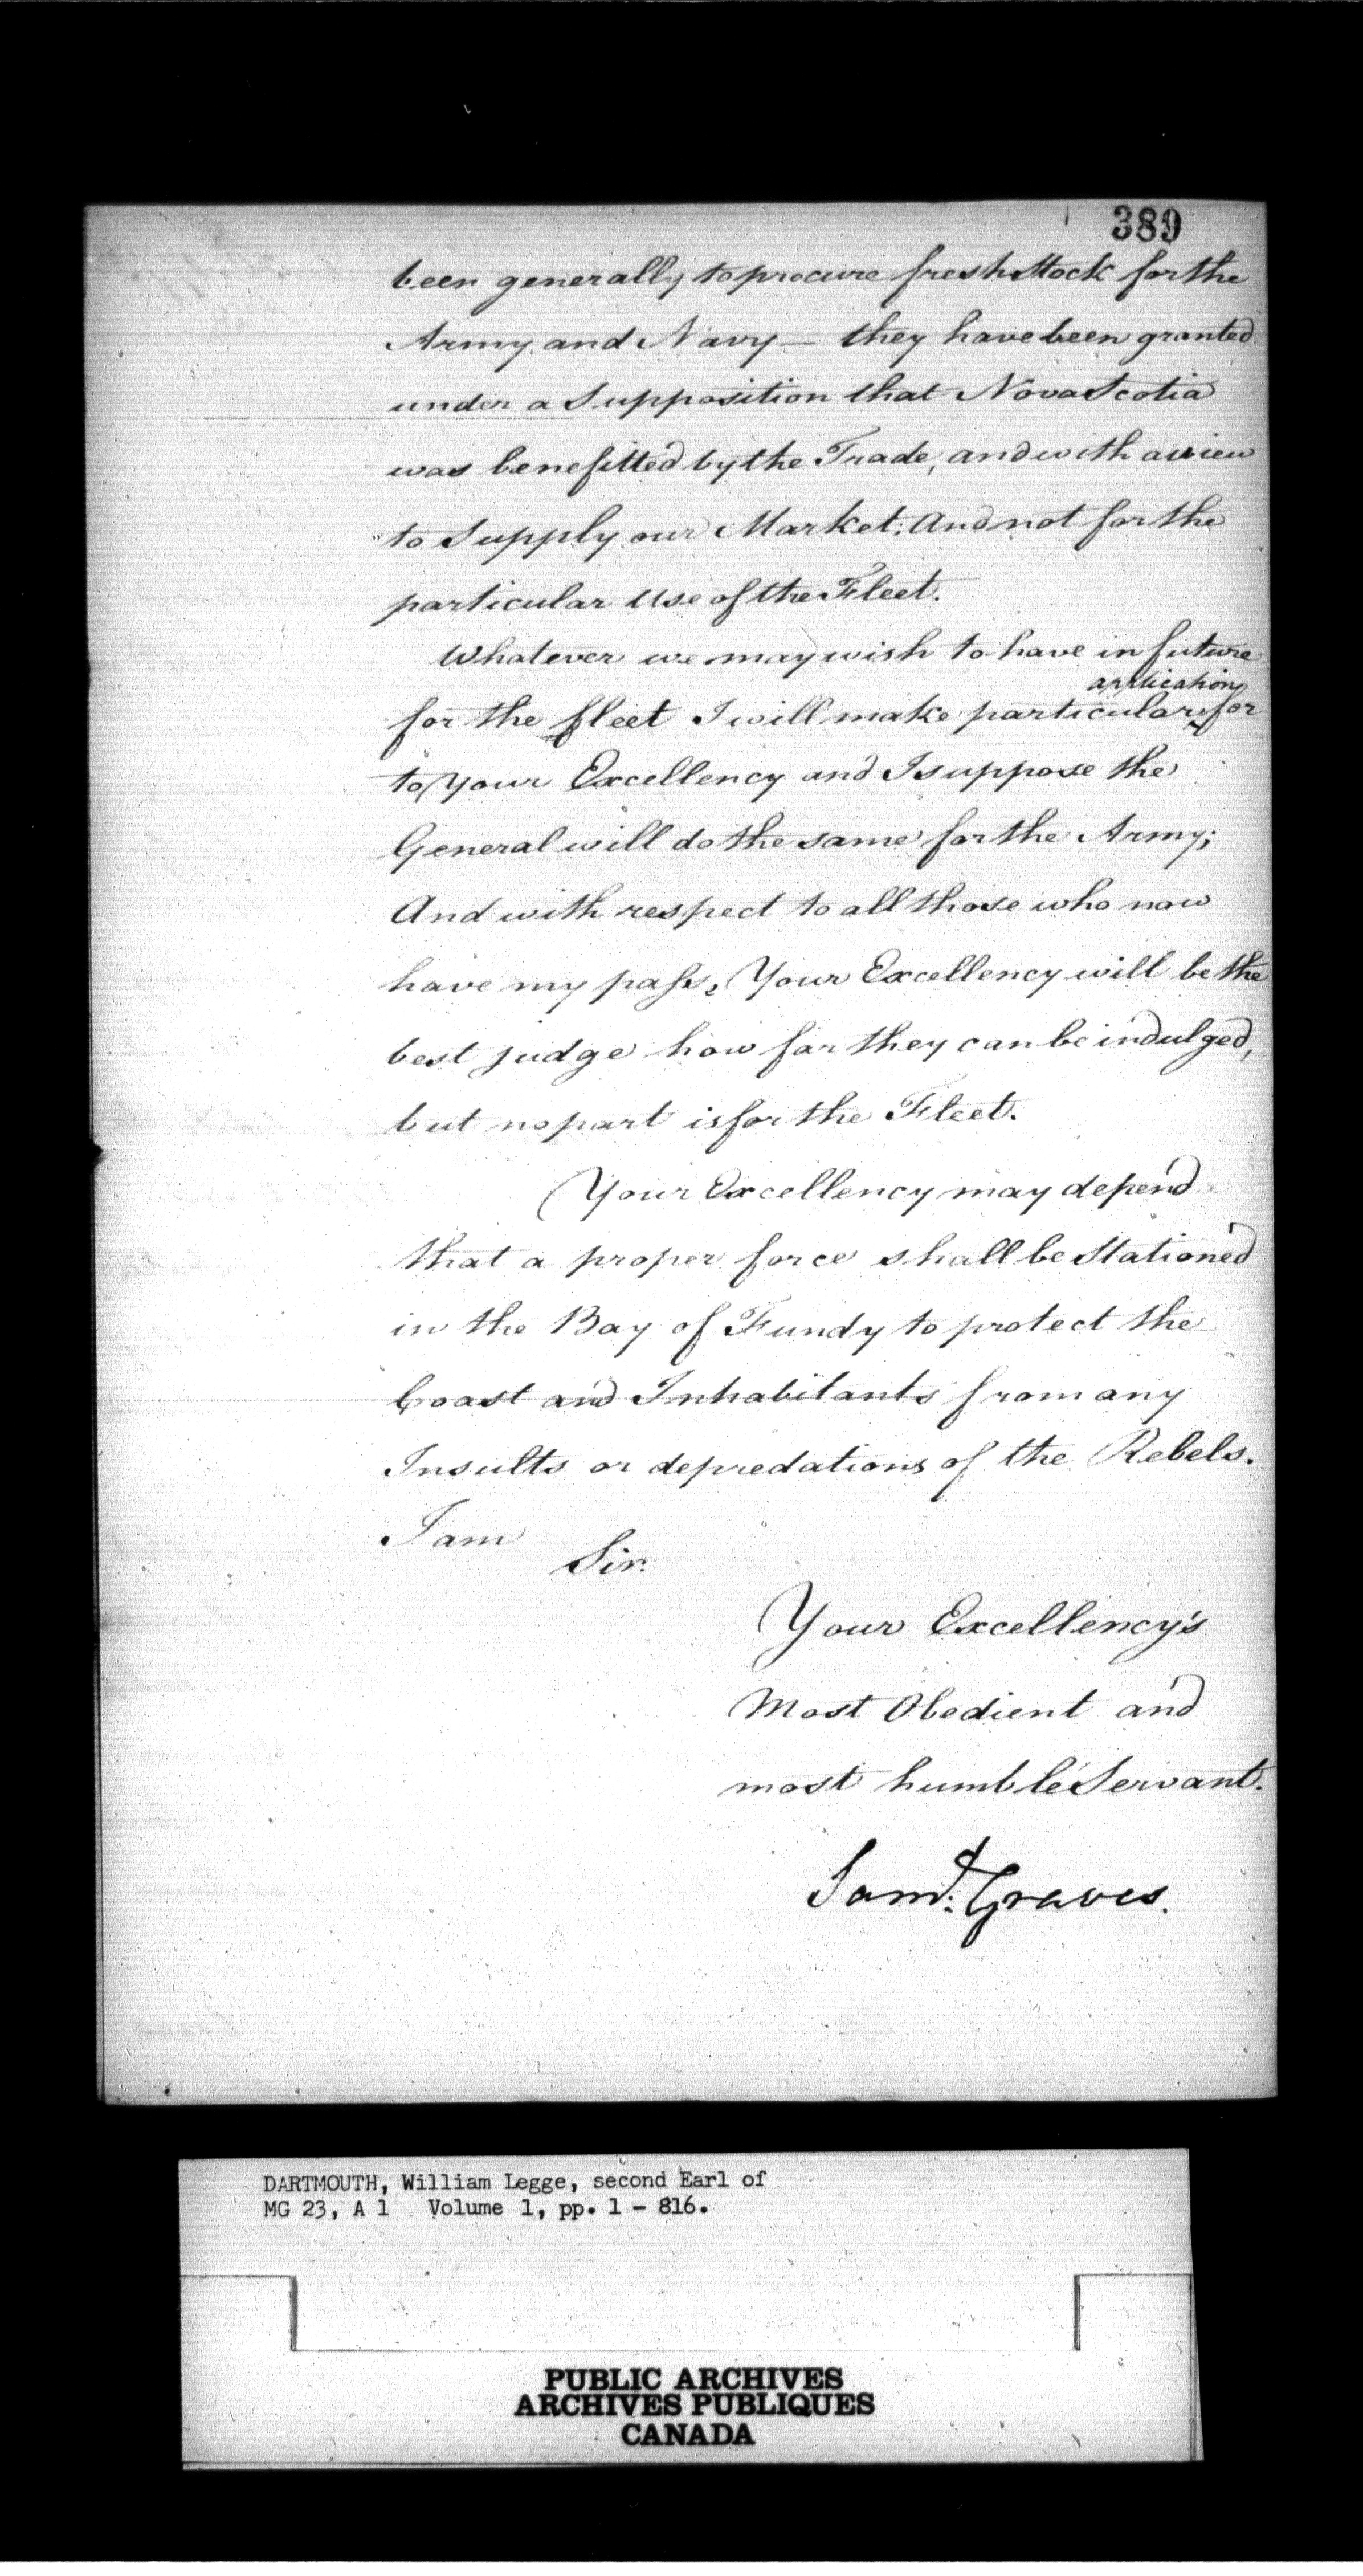 389
been generally to procure fresh Stock for the
Army and Navy — they have been granted
under a Supposition that Nova Scotia
was benefitted by the Trade, and with a view
to Supply our Market; And not for the
particular Use of the Fleet.
Whatever we may wish to have in future
application
for the fleet I will make particular for
to Your Excellency and I suppose the
General will do the same for the Army;
And with respect to all those who now
have my pass, Your Excellency will be the
best judge how far they can be indulged,
but no part is for the Fleet.
Your Excellency may depend
that a proper force shall be Stationed
in the Bay of Fundy to protect the
Coast and Inhabitants from any
Insults or depredations of the Rebels.
I am
Sir.
Your Excellency's
Most Obedient and
most humble Servant.
Sam.l Graves.
DARTMOUTH, William Legge, second Earl of
MG 23, A 1 Volume 1, pp. 1 - 816.
PUBLIC ARCHIVES
ARCHIVES PUBLIQUES
CANADA